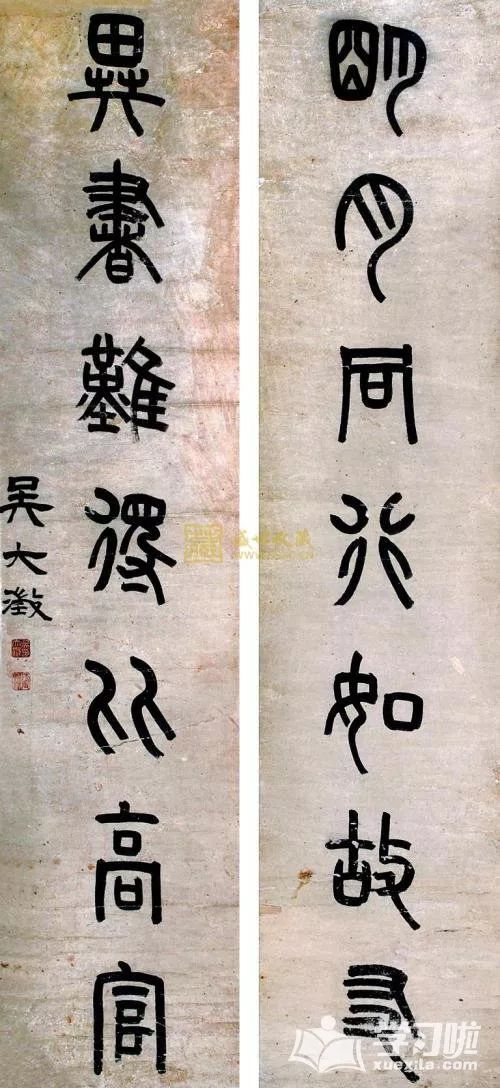 明月同行如故友
異書難得比高官
吳大澂
盛世收藏
学习啦
xuexila.com